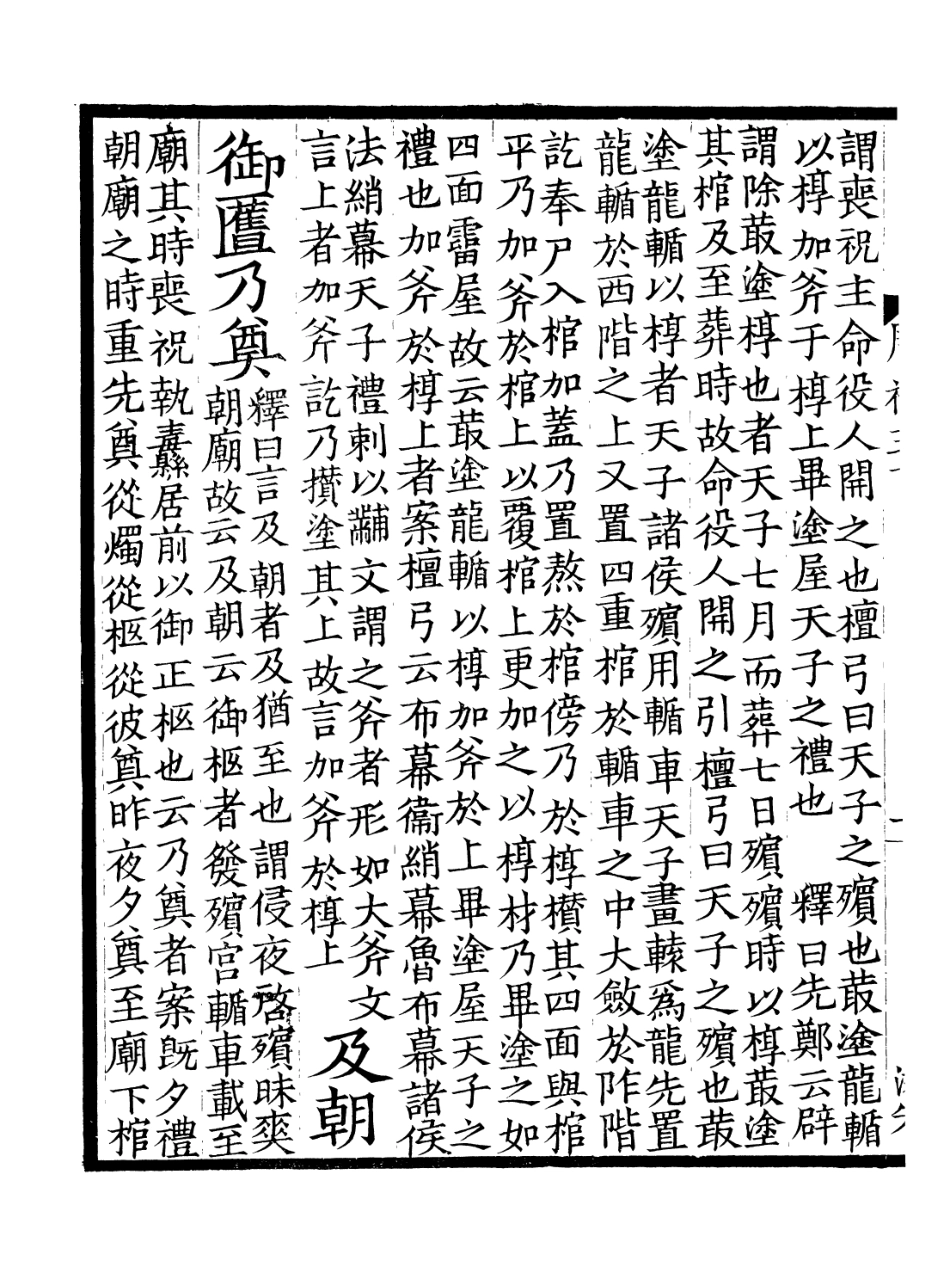 謂喪祝主命役人開之也檀弓曰天子之殯也菆塗龍輴
以椁加斧于椁上畢塗屋天子之禮也 釋曰先鄭云辟
謂除菆塗椁也者天子七月而葬七日殯殯時以椁菆塗
其棺及至葬時故命役人開之引檀弓曰天子之殯也菆
塗龍輴以椁者天子諸侯殯用輴車天子畫轅爲龍先置
龍輴於西階之上又置四重棺於輴車之中大斂於阼階
訖奉尸入棺加蓋乃置熬於棺傍乃於椁攢其四面與棺
平乃加斧於棺上以覆棺上更加之以椁材乃畢塗之如
四面霤屋故云菆塗龍輴以椁加斧於上畢塗屋天子之
禮也加斧於椁上者案檀弓云布幕衞綃幕魯布幕諸侯
法綃幕天子禮刺以黼文謂之斧者形如大斧文
言上者加斧訖乃攢塗其上故言加斧於椁上
及朝
御匶乃奠
釋曰言及朝者及猶至也謂侵夜啓殯昧爽
朝廟故云及朝云御柩者發殯宮輴車載至
廟其時喪祝執纛居前以御正柩也云乃奠者案既夕禮
朝廟之時重先奠從燭從柩從彼奠昨夜夕奠至廟下棺